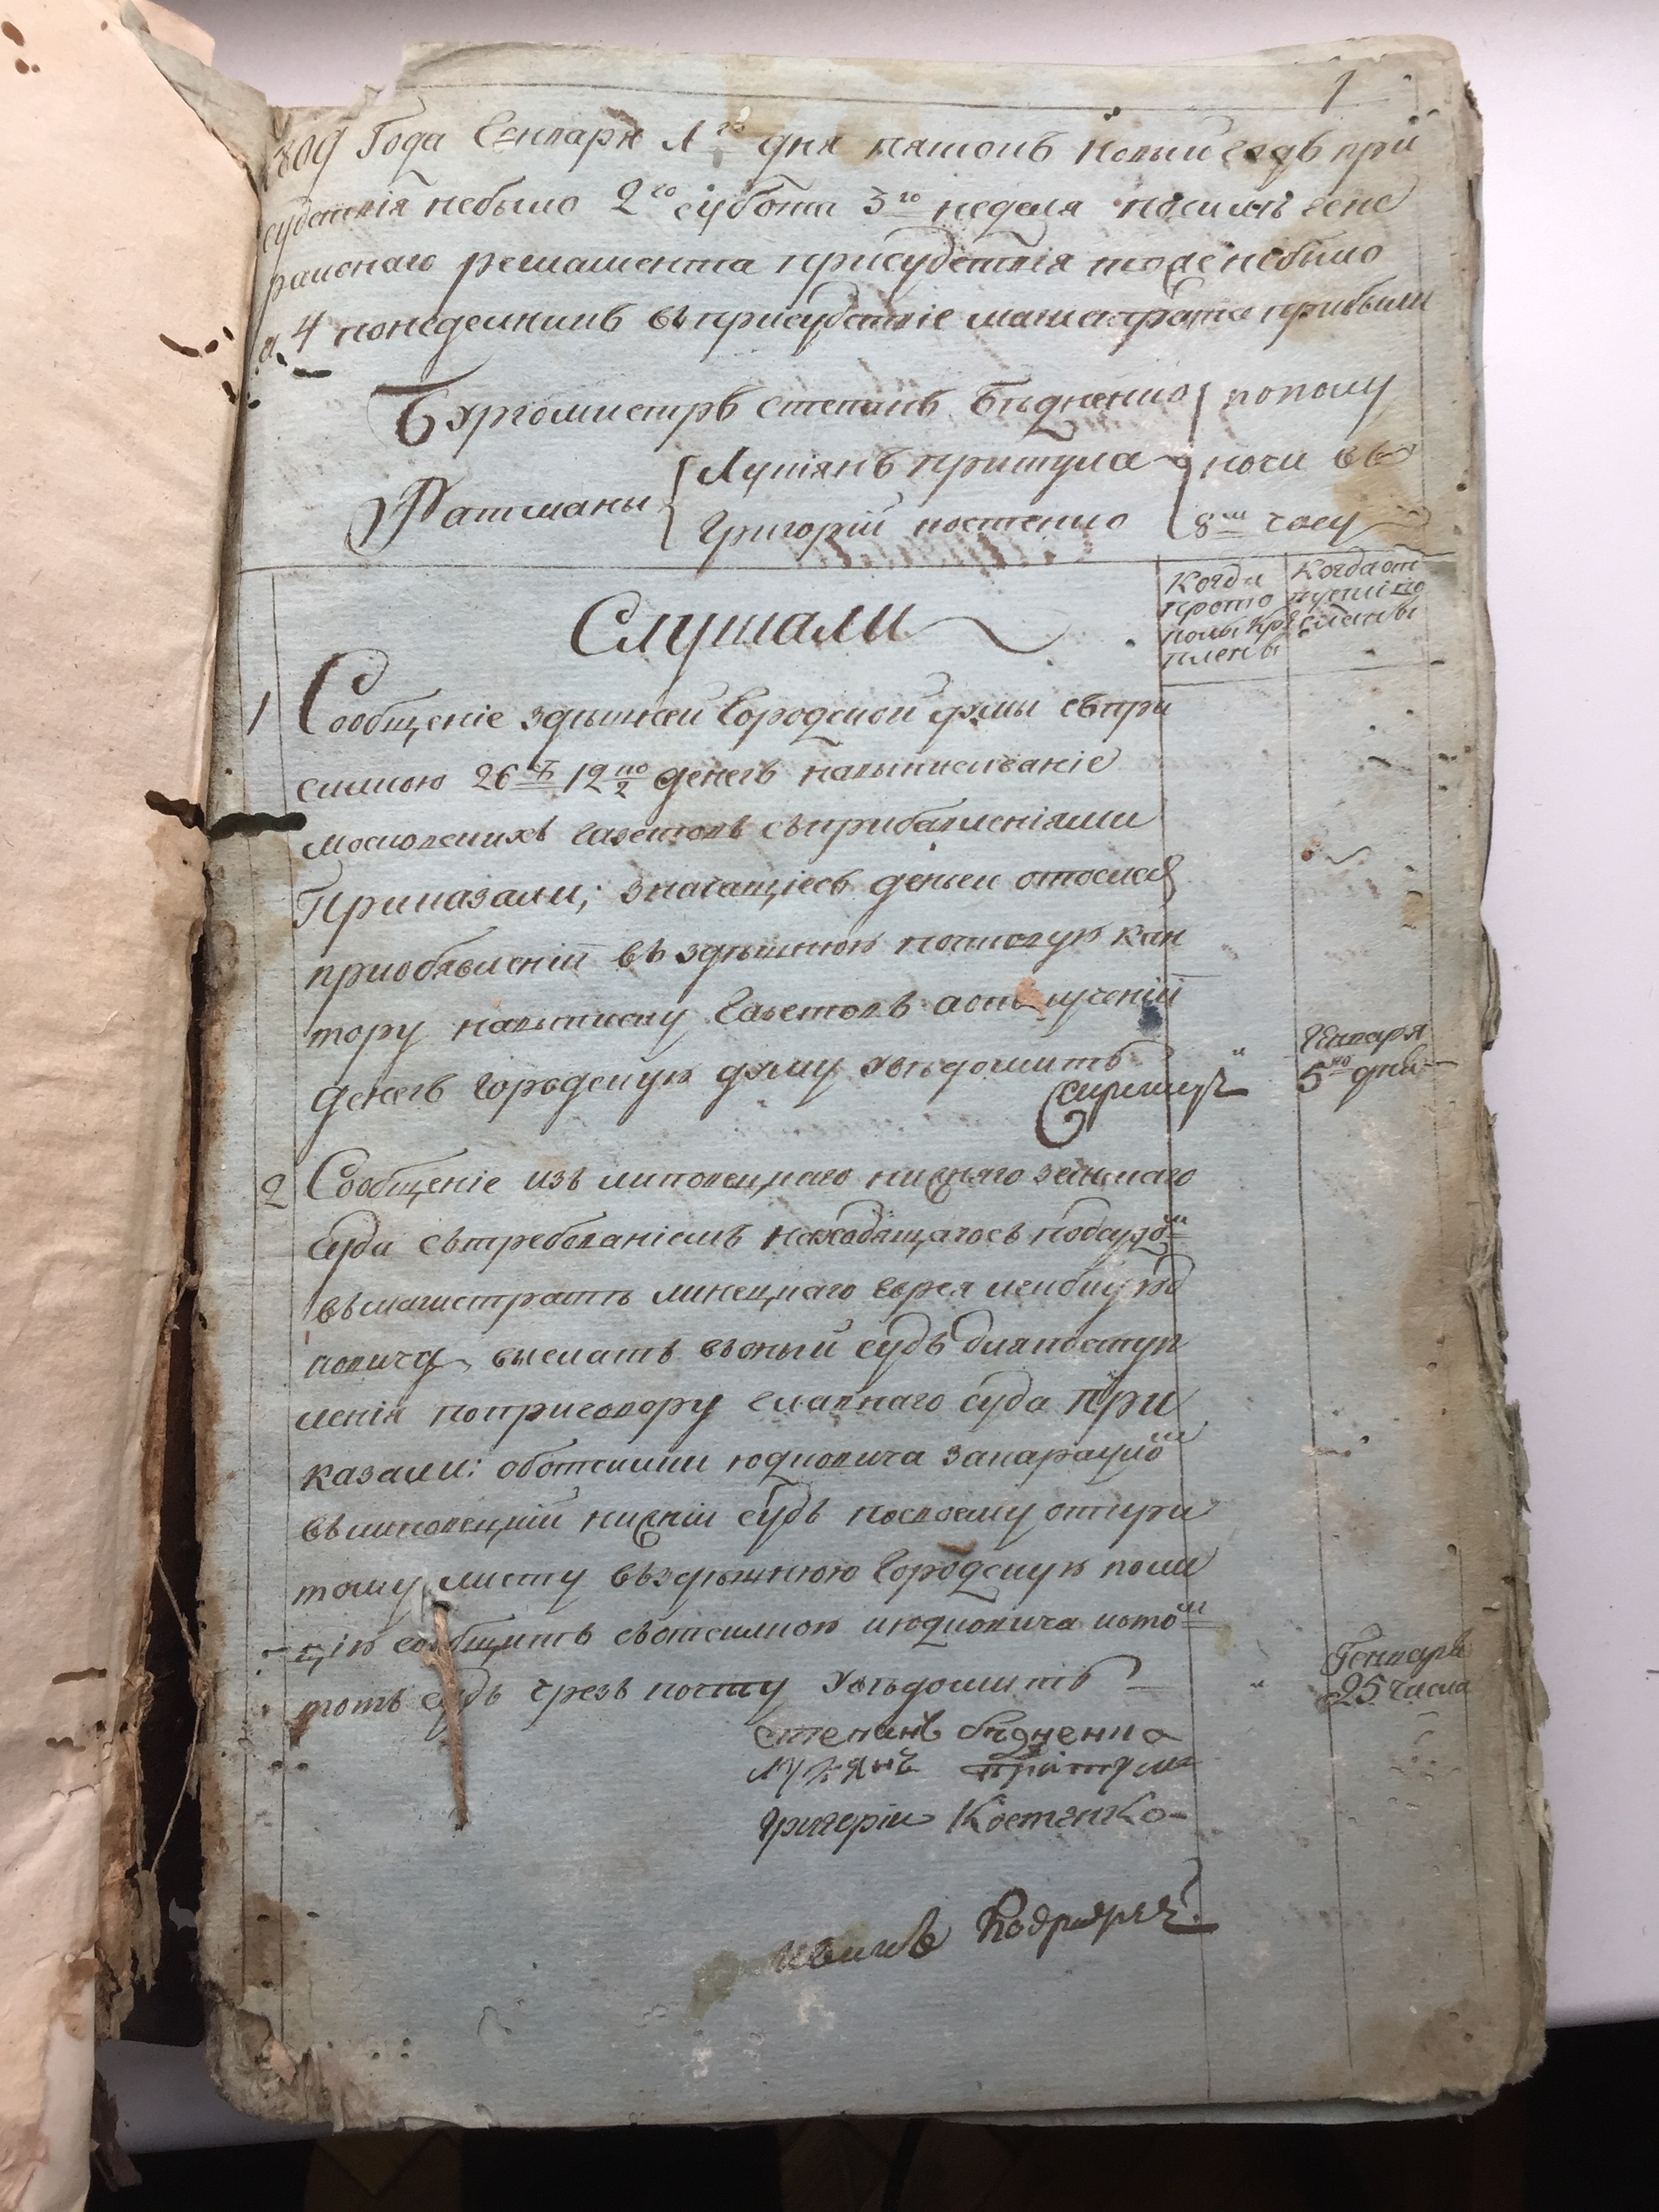 1
1809 Года Генваря 1го дня пятокъ новый годъ при
судствія небыло 2го субота 3го неделя посилѣ гене
ралного регламента присудствія тоже небыло
а 4 понеделникъ въ присудствіе магистрата прибыли
Бургомистръ Степанъ Бѣдненко пополу
Ратманы Лукіянъ притула ночи въ
Григорій костенко 8м часу
Слушали
Когда прото колы крѣ плены
Когда от пуски по сланы
1 Сообщеніе здѣшней Городской думы съ при
силкою 26 р 12 ко 2 денегъ навыписиваніе
московскихъ газетовъ съприбавленіями
Приказали; значащіесь деньги отослав
приобявленій въ здѣшнюю почтовую кан
тору навыписку газетовъ аополученій
денегъ городскую думу увѣдомить
Генваря 5го дня
2 Сообщеніе изъ липовецкаго нижняго земскаго
суда сътребованіемъ находящагось подсудом
въмагистратѣ линецкаго еврея лейбы юд
ковича, выслать въоный судъ дляпоступ
ленія поприговору главнаго суда При
казали: оботсилки юдковича закарауло
въ липовецкій нижній судъ посвоему откри
тому листу въздѣшнюю городскую поли
цію сообщить сьотсилкою июдковича иотом
тотъ судъ чрезъ почту увѣдомить
Генваря 25 числа
Степанъ бѣдненко
лукянъ притула
Григорій Костенко
иванъ